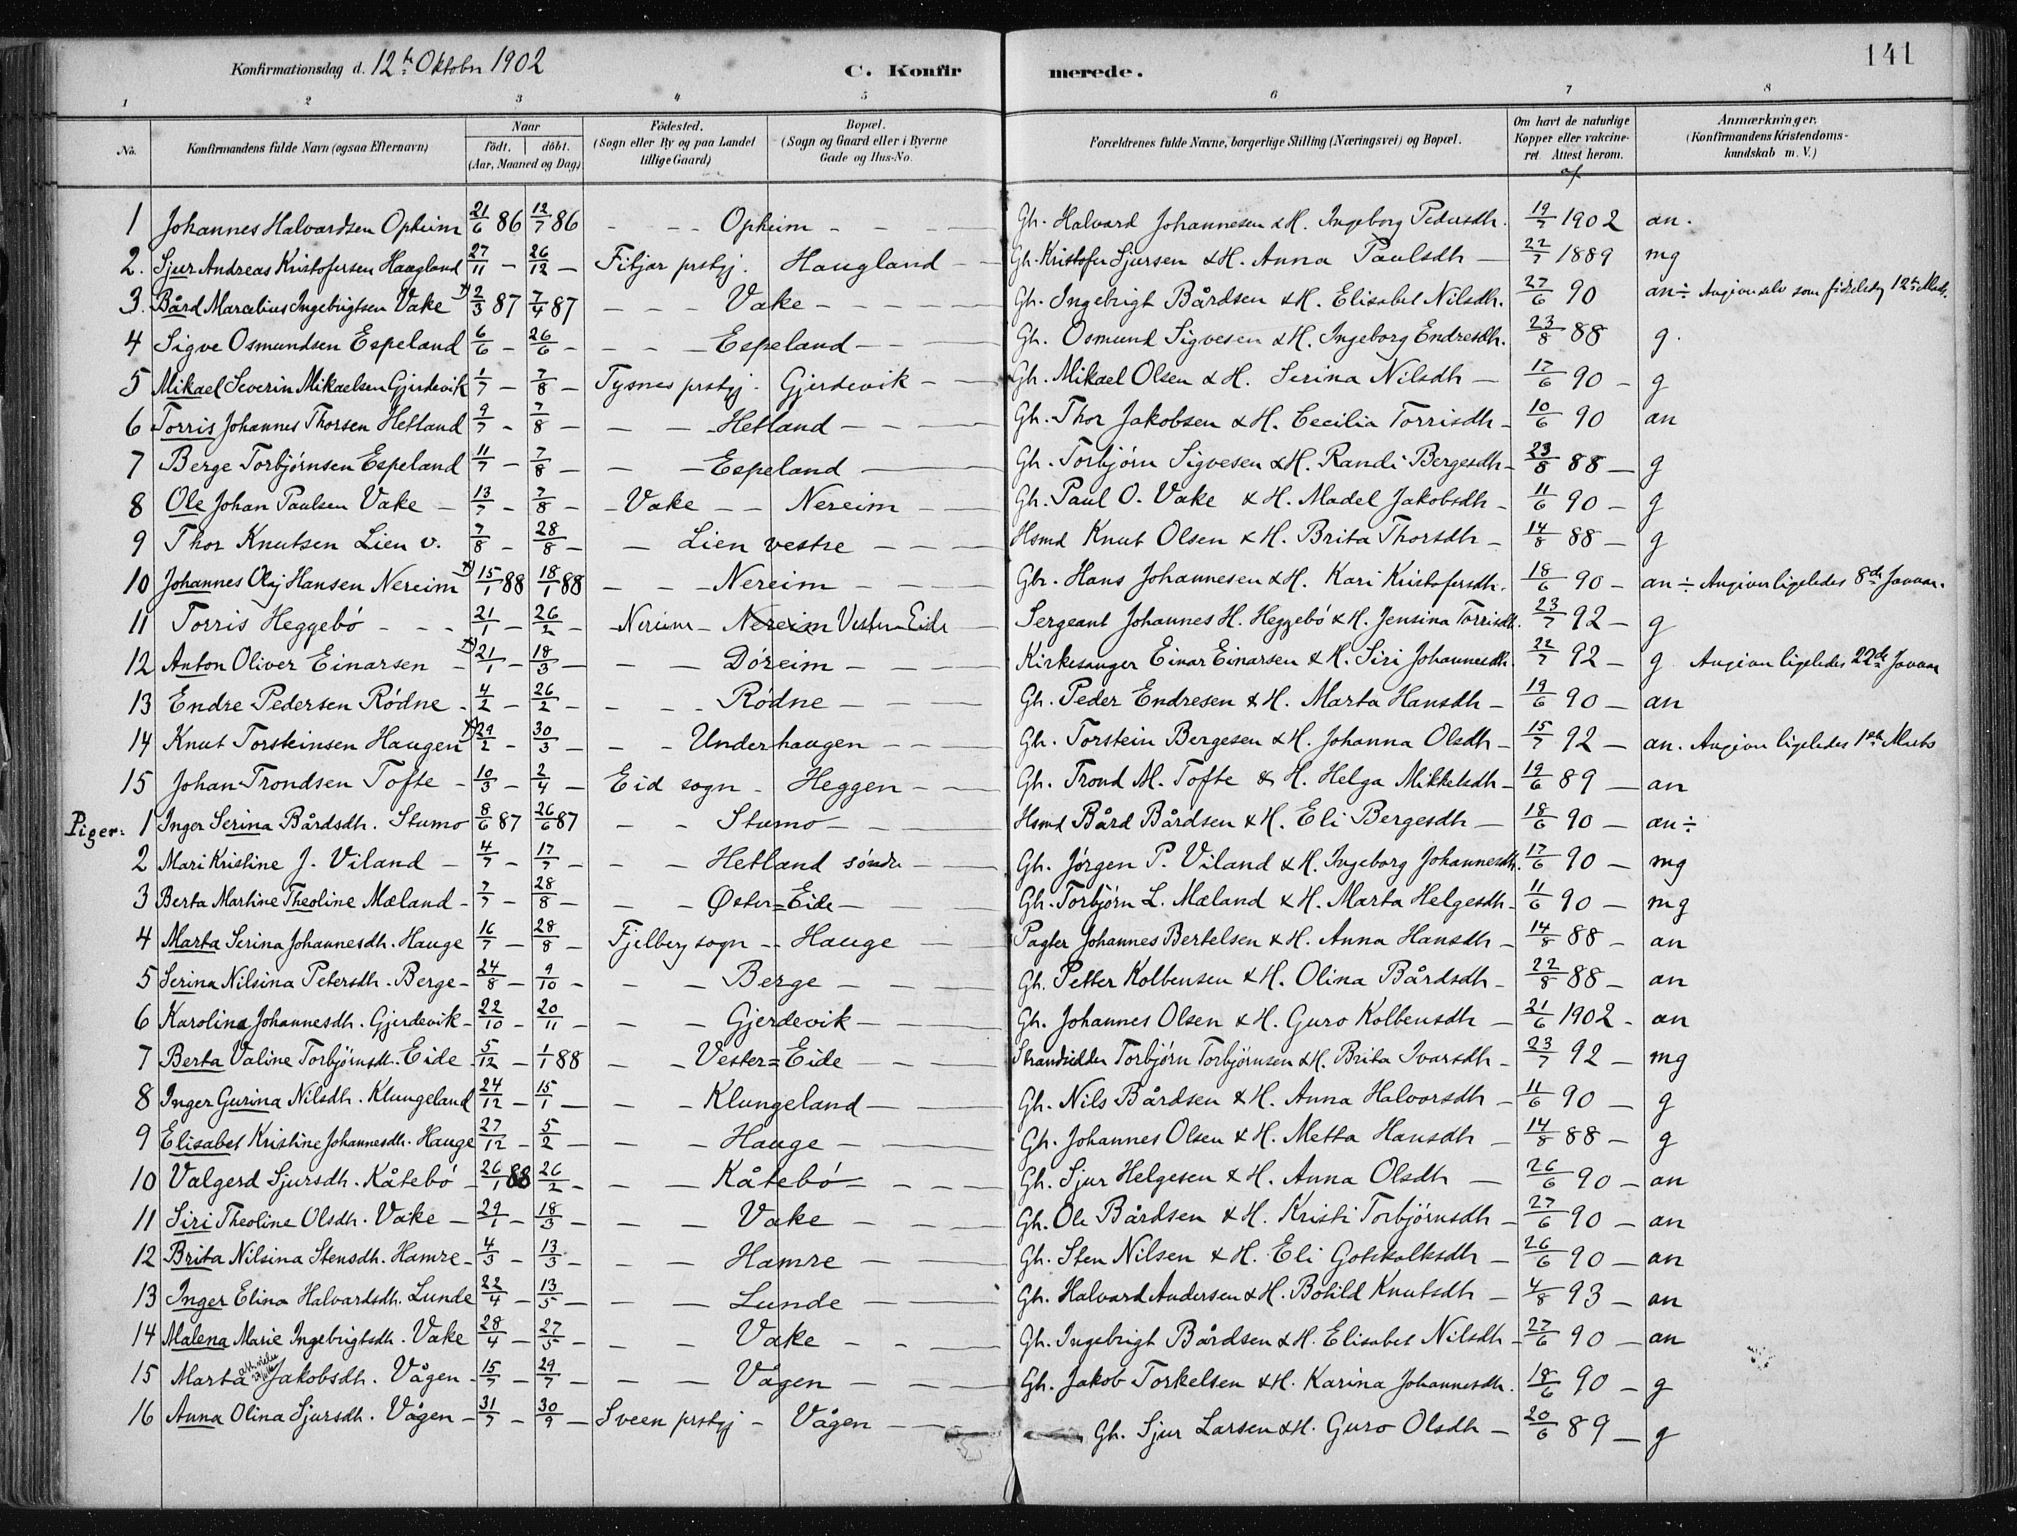 Konfirmationsdag d. 12te Oktober 1902 C. Konfirmerede. 141
1 2 3 4 5 6 7 8
No. Konfirmandens fulde Navn (ogsaa Efternavn) Naar født. døbt. (Aar, Maaned og Dag) Födested. (Sogn eller By og paa Landet tillige Gaard) Bopæl. (Sogn og Gaard eller i Byerne Gade og Hus-No. Forældrenes fulde Navne, borgerlige Stilling (Næringsvei) og Bopæl. Om havt de naturlige Kopper eller vakcineret. Attest herom. Anmærkninger. (Konfirmandens Kristendomskundskab m. V.)
1 Johannes Halvardsen Opheim 21/6 86 12/7 86 - - - Opheim - - - Gh. Halvard Johannesen & H. Ingeborg Pedersdh. 19/7 1902 an.
2. Sjur Andreas Kristofersen Haugland 27/11 - 26/12 - Fitjar prstgj. Haugland - Gh. Kristofer Sjursen & H. Anna Paulsdh - 22/7 1889 mg
3. Bård Marcelius Ingebrigtsen Vake 2/3 87 7/4 87 - - - Vake - - - Gh. Ingebrigt Bårdsen & H. Elisabet Nilsdh. 27/6 90 an ÷ Angiver selv som 12te Marts
4 Sigve Osmundsen Espeland 6/6 - 26/6 - - - - Espeland - - Gh. Osmund Sigvesen & H. Ingeborg Endresdh. 23/8 88 g.
5 Mikael Severin Mikaelsen Gjerdevik 1/7 - 7/8 - Tysnes prstgj. Gjerdevik - Gh. Mikael Olsen & H. Serina Nilsdh - 17/6 90 - g
6 Torris Johannes Thorsen Hetland 9/7 - 7/8 - - - Hetland - - - Gh. Thor Jakobsen & H. Cecilia Torrisdh - 10/6 90 an
7 Berge Torbjørnsen Espeland 11/7 - 7/8 - - - Espeland - Gh. Torbjørn Sigvesen & H. Randi Bergesdh - 23/8 88 - g
8 Ole Johan Paulsen Vake - 13/7 - 7/8 - - Vake - - Nereim - Gh. Paul O. Vake & H. Madel Jakobsdh - 11/6 90 - g
9 Thor Knutsen Lien v. 7/8 - 28/8 - - Lien vestre - - - Hsmd Knut Olsen & H. Brita Thorsdh - 14/8 88 - g
10 Johannes Olaj Hansen Nereim 15/1 88 18/1 88 - - - Nereim - Gbr. Hans Johannesen & H. Kari Kristofersdh. 18/6 90 - an ÷ Angiver ligeledes 8de Januar.
11 Torris Heggebö - - - 21/1 - 26/2 - Nereim - Nereim Vester-Eide Sergeant Johannes H. Heggebö & H. Jensina Torrisdh. 23/7 92 - g
12 Anton Oliver Einarsen 21/1 - 18/3 - - - Döreim - Kirkesanger Einar Einarsen & H. Siri Johannesdh. 22/7 92 - g Angiver ligeledes 22de Januar
13 Endre Pedersen Rödne - 4/2 - 26/2 - - - - Rödne - Gh. Peder Endresen & H. Marta Hansdh - 19/6 90 - an
14 Knut Torsteinsen Haugen 29/2 - 30/3 - - - Underhaugen - Gh. Torstein Bergesen & H. Johanna Olsdh - 15/7 92 - an. Angiver ligeledes 1ste Marts
15 Johan Trondsen Tofte - 10/3 - 2/4 - Eid sogn - Heggen - Gh. Trond M. Tofte & H. Helga Mikkelsdh - 19/6 89 - an
Piger: 1 Inger Serina Bårdsdh. Stumo 8/6 87 26/6 87 - - Stumo - Hsmd Bård Bårdsen & H. Eli Bergesdh - 18/6 90 - an ÷
2 Mari Kristine J. Viland - 4/7 - 17/7 - - - Hetland söndre - Gh. Jørgen P. Viland & H. Ingeborg Johannesdh. 17/6 90 - mg
3 Berta Martine Theoline Mæland - 7/7 - 28/8 - - - Øster=Eide - Gh. Torbjørn L. Mæland & H. Marta Helgesdh - 11/6 90 - mg
4 Marta Serina Johannesdh. Hauge 16/7 - 28/8 - Fjelberg sogn - Hauge - Pagter Johannes Bertelsen & H. Anna Hansdh - 14/8 88 - an
5 Serina Nilsina Petersdh. Berge - 24/8 - 9/10 - - - Berge - Gh. Petter Kolbensen & H. Olina Bårdsdh - 22/8 88 - an
6 Karolina Johannesdh. Gjerdevik - 22/10 - 20/11 - - - Gjerdevik - Gh. Johannes Olsen & H. Guro Kolbensdh - 21/6 1902 - an
7 Berta Valine Torbjørnsdh. Eide - 5/12 - 1/1 88 - - Vester=Eide - Strandsidder Torbjørn Torbjørnsen & H. Brita Ivarsdh - 23/7 92 - mg
8 Inger Gurina Nilsdh. Klungeland 24/12 - 15/1 - - - Klungeland - Gh. Nils Bårdsen & H. Anna Halvorsdh - 11/6 90 - g
9 Elisabet Kristine Johannesdh. Hauge 27/12 - 5/2 - - - Hauge - Gh. Johannes Olsen & H. Metta Hansdh - 14/8 88 - g
10 Valgerd Sjursdh. Kåtebö - 26/1 88 26/2 - - - Kåtebö - Gh. Sjur Helgesen & H. Anna Olsdh - 26/6 90 - an
11 Siri Theoline Olsdh. Vake - 29/1 - 18/3 - - - Vake - Gh. Ole Bårdsen & H. Kristi Torbjørnsdh - 27/6 90 - an
12 Brita Nilsina Stensdh. Hamre - 4/3 - 13/3 - - - Hamre - Gh. Sten Nilsen & H. Eli Gotskalksdh - 26/6 90 - an
13 Inger Elina Halvardsdh. Lunde 22/4 - 13/5 - - - Lunde - Gh. Halvard Andersen & H. Botild Knutsdh - 4/8 93 - an
14 Malena Marie Ingebrigtsdh. Vake 28/4 - 27/5 - - - Vake - Gh. Ingebrigt Bårdsen & H. Elisabet Nilsdh - 27/6 90 - an
15 Marta Jakobsdh. Vågen - 15/7 - 29/7 - - - Vågen - Gh. Jakob Torkelsen & H. Karina Johannesdh. 18/6 90 - g
16 Anna Olina Sjursdh. Vågen - 31/7 - 30/9 - Sveen prstgj - Vågen - Gh. Sjur Larsen & H. Guro Olsdh - 20/6 89 - g